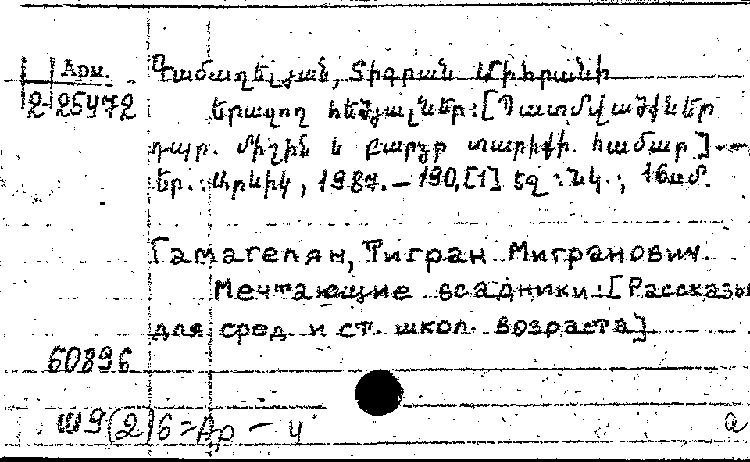 Арм.
2-25472
Գամաղելյան, Տիգրան Միհրանի
Երազող հեծյալներ: [Պատմվածքներ
դպր. միջին և բարձր տարիքի համար].--
Եր.: Արևիկ, 1987.- 190,[1] էջ : նկ.; 16սմ.
Гамагелян, Тигран Мигранович.
Мечтающие всадники: [Рассказы
для сред. и ст. школ. возраста]
60896
Ш9(2)6=Ар - 4
а